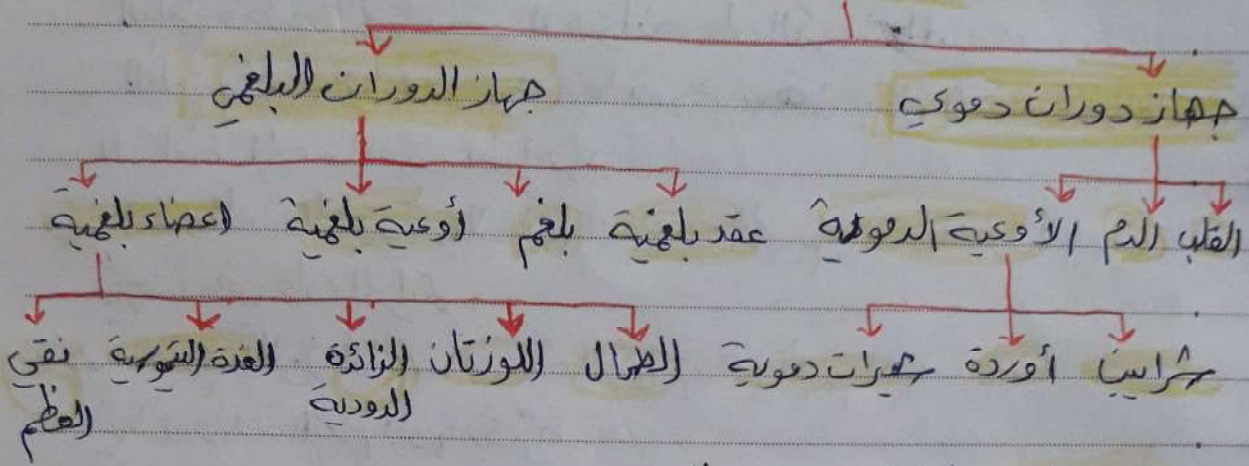 جهاز دوران دموي جهاز الدوران البلغمي
القلب الدم الأوعية الدموية عقد بلغمية بلغم أوعية بلغمية اعضاء بلغمية
شرايين أوردة شعيرات دموية الطحال اللوزتان الزائدة الغدة التيموسية نقي
الدودية العظم